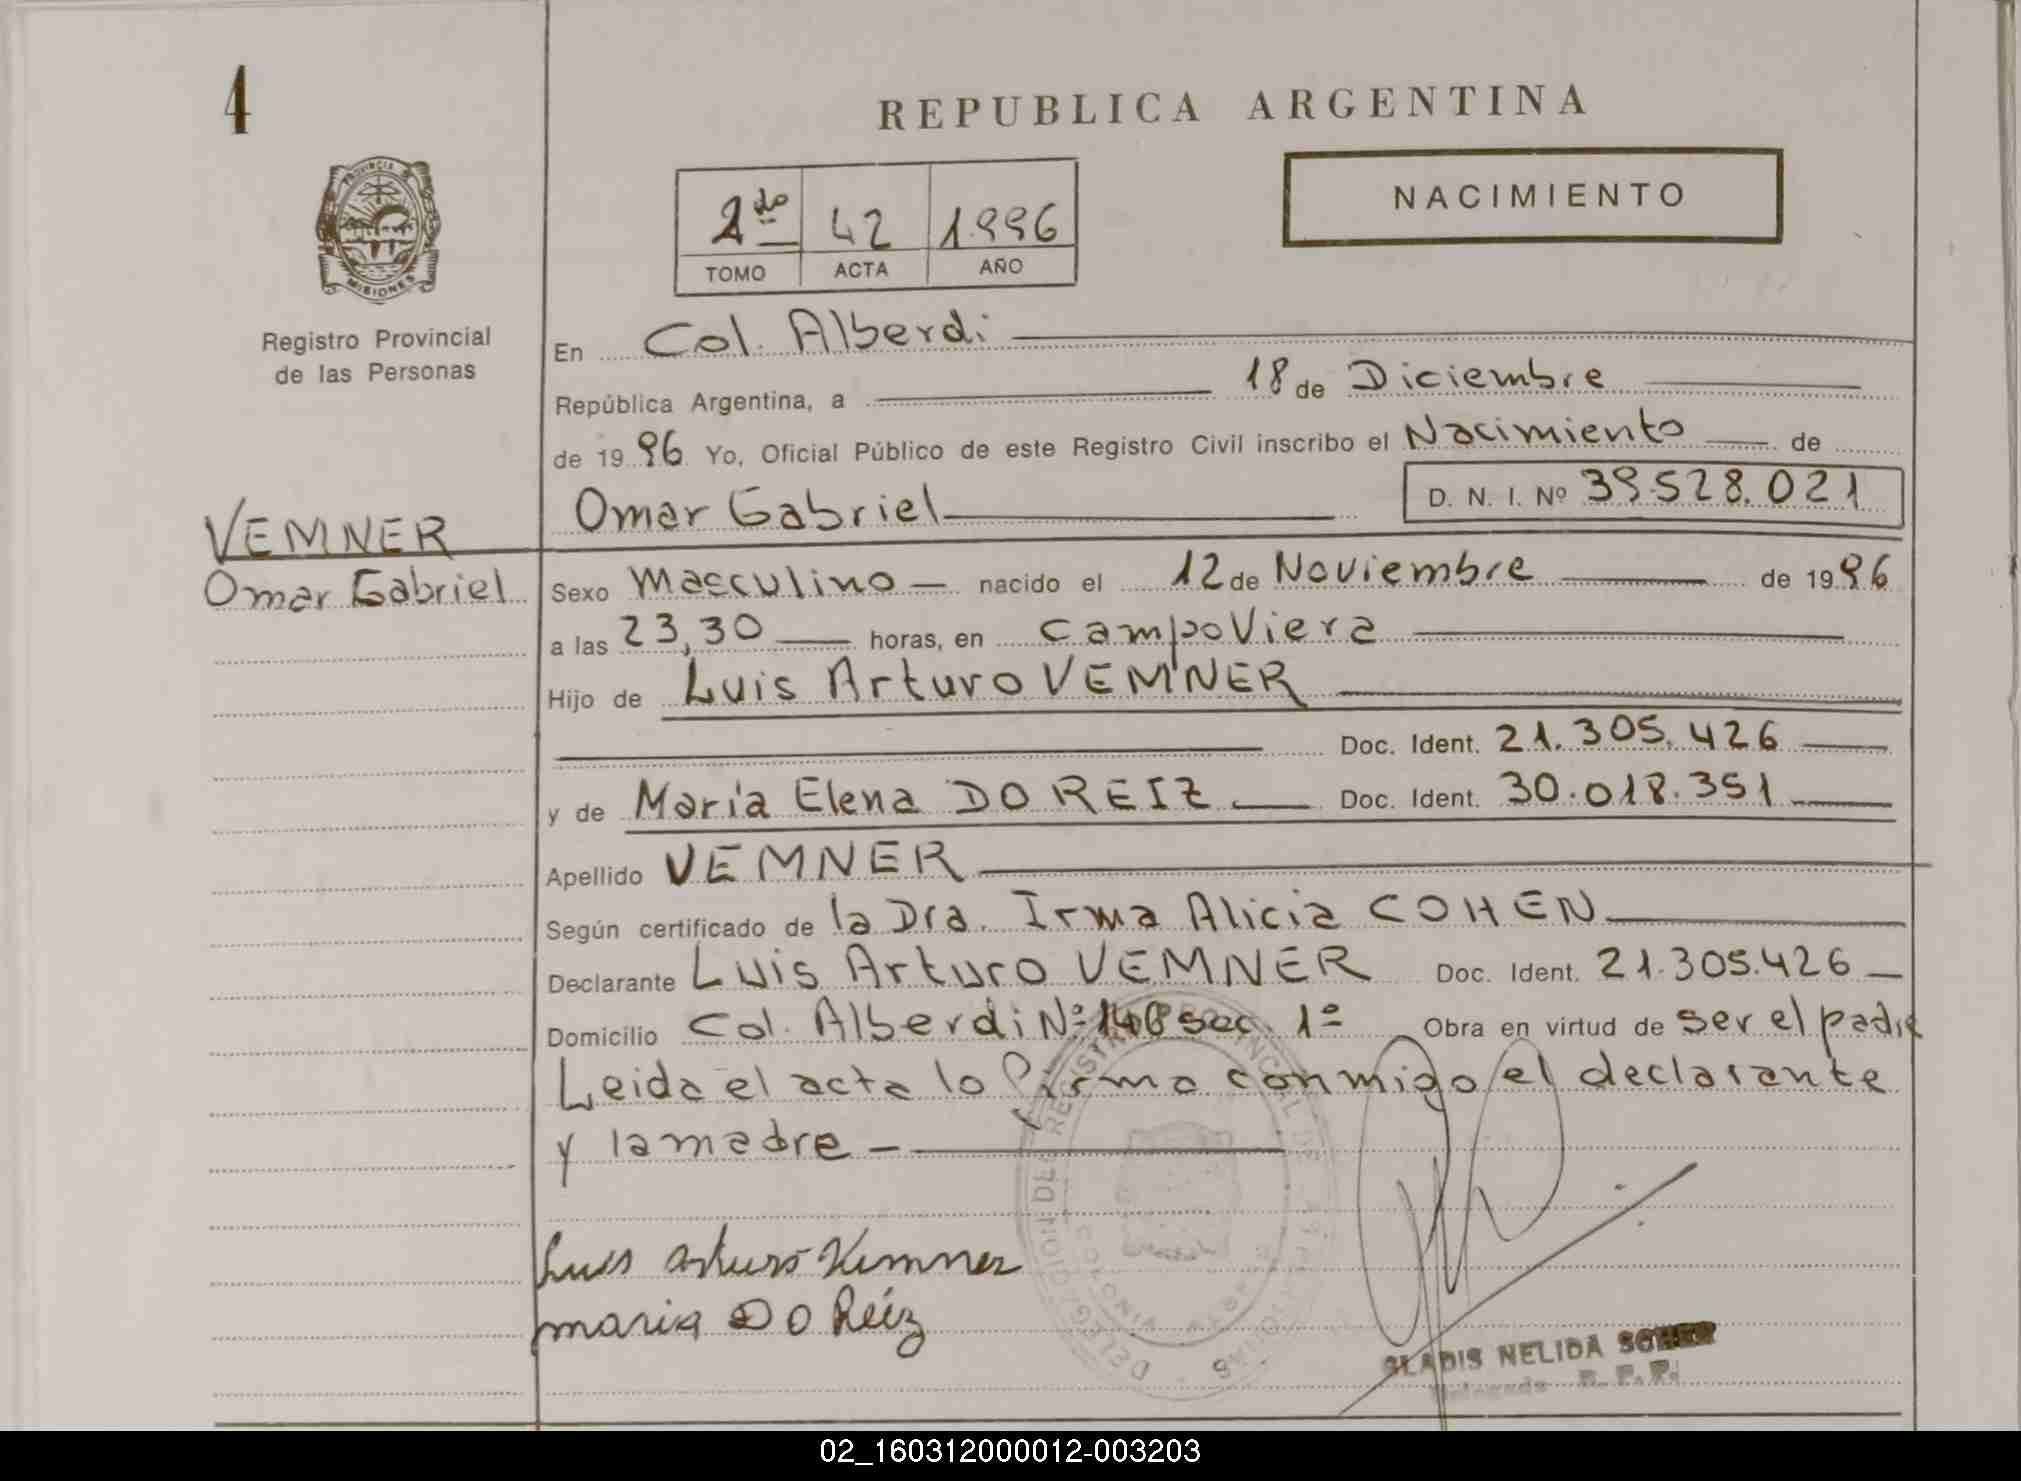 4
REPUBLICA ARGENTINA
PROVINCIA DE
MISIONES
Registro Provincial
de las Personas
2do 42 1996
TOMO ACTA AÑO
NACIMIENTO
En Col. Alberdi
República Argentina, a 18 de Diciembre
de 1996 Yo, Oficial Público de este Registro Civil inscribo el Nacimiento de
Omar Gabriel D. N. I. Nº 39.528.021
VEMNER
Omar Gabriel
Sexo Masculino nacido el 12 de Noviembre de 1996
a las 23,30 horas, en Campo Viera
Hijo de Luis Arturo VEMNER
Doc. Ident. 21.305.426
y de María Elena DO REIZ Doc. Ident. 30.018.351
Apellido VEMNER
Según certificado de la Dra. Irma Alicia COHEN
Declarante Luis Arturo VEMNER Doc. Ident. 21.305.426
Domicilio Col. Alberdi Nº sec. 1º Obra en virtud de ser el padre
Leida el acta lo firma conmigo el declarante
y la madre
Luis Arturo Vemner
maria DO Reiz
GLADIS NELIDA
R. P. P.
02_160312000012-003203